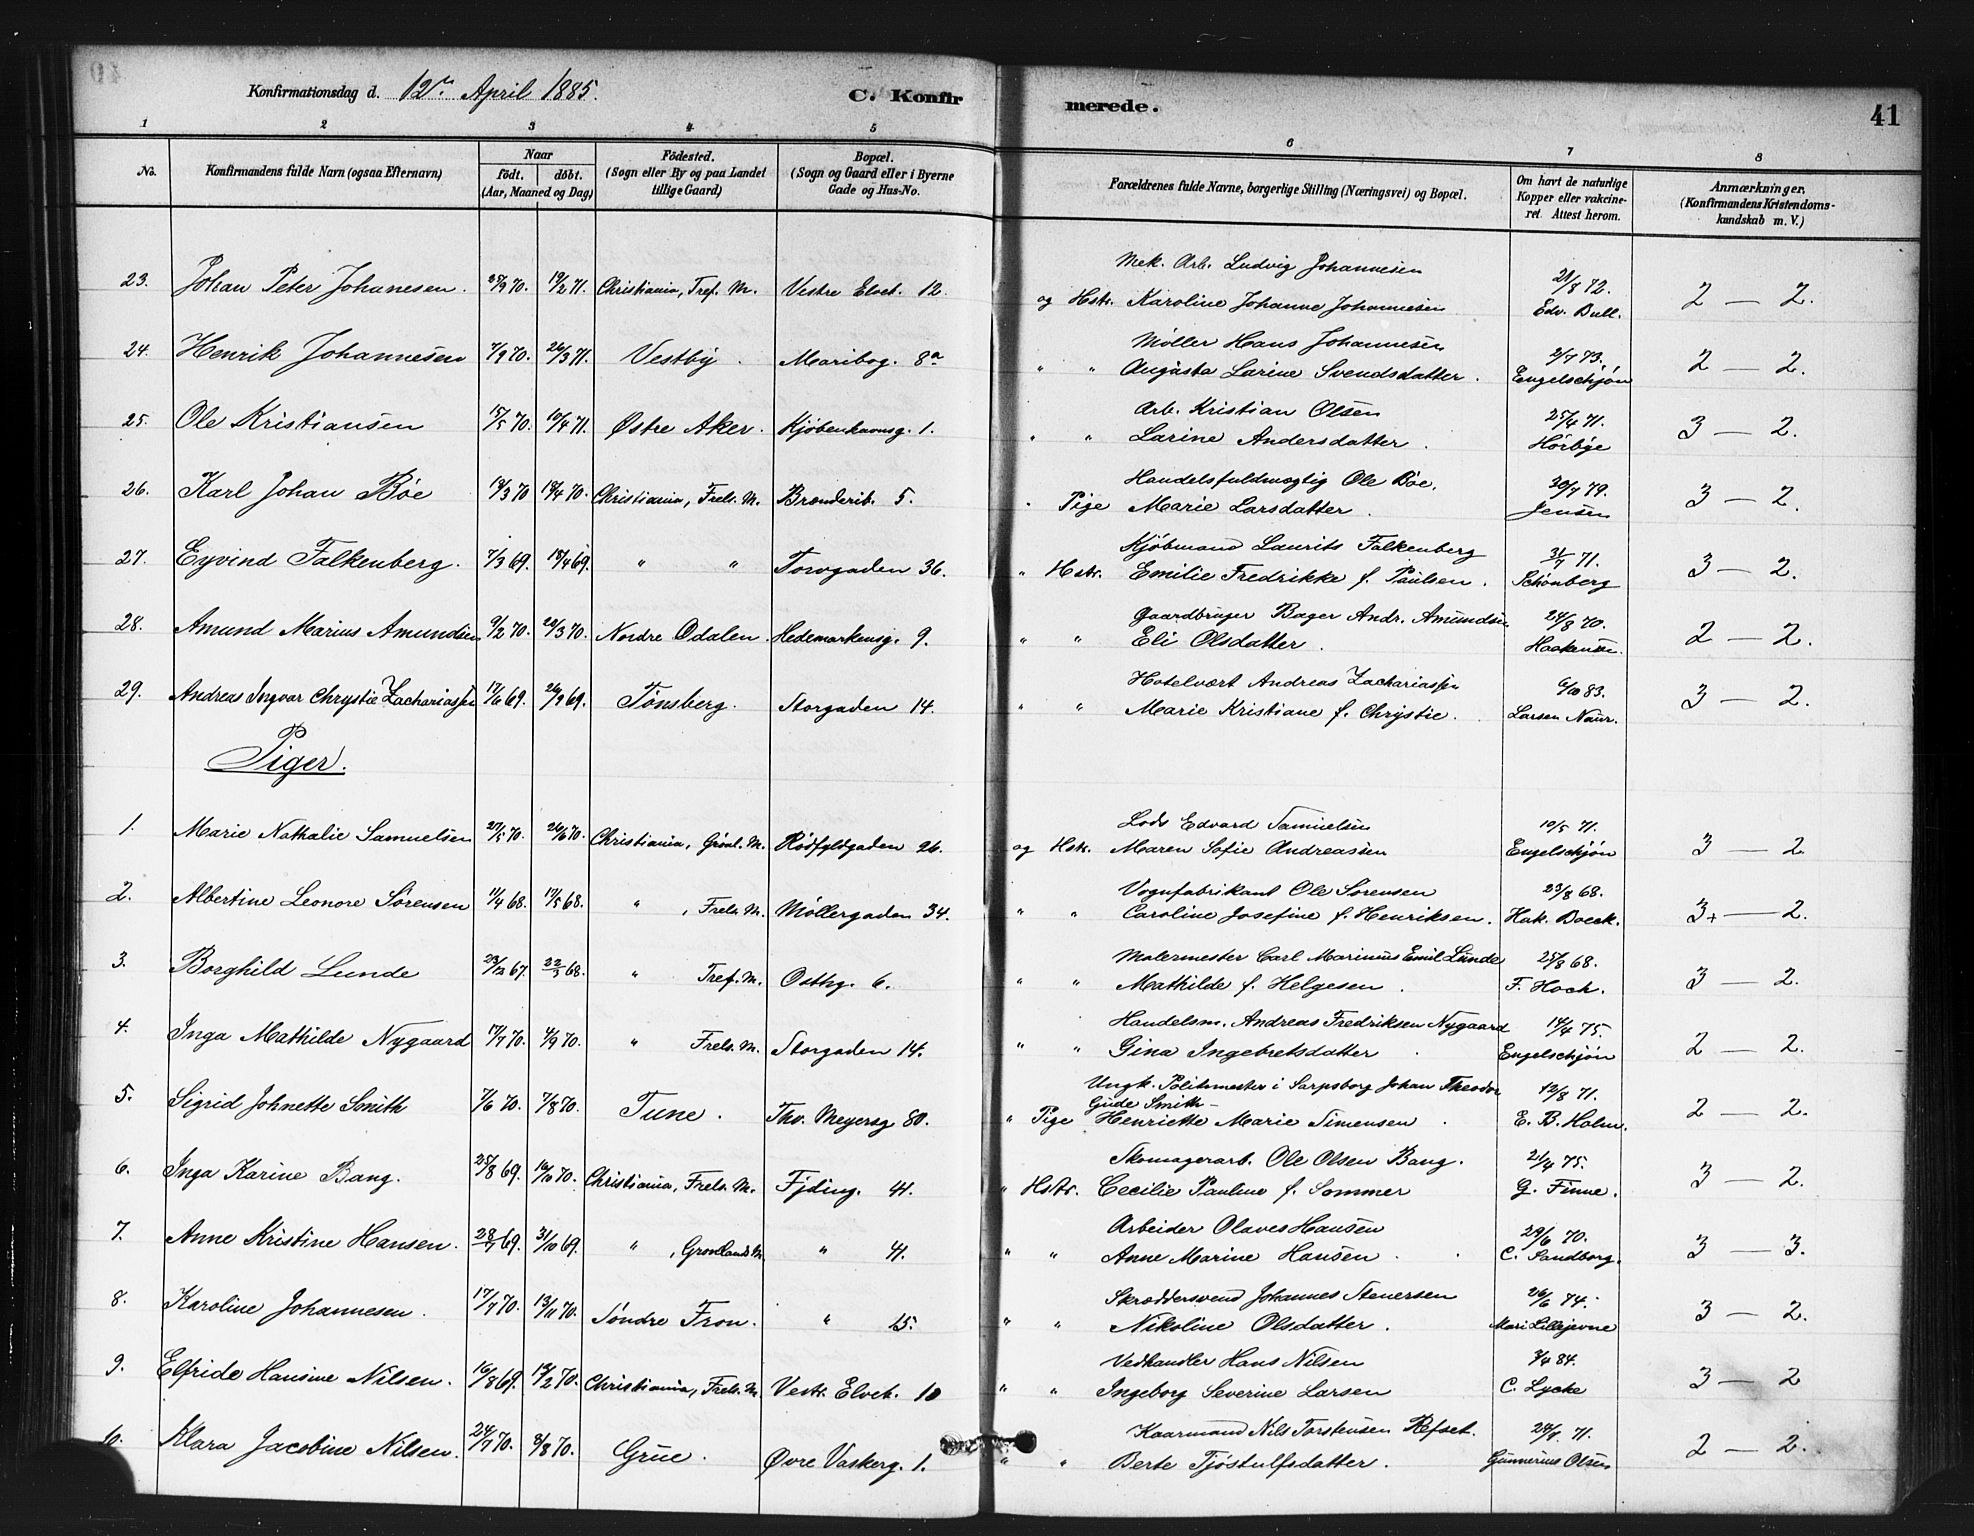 Konfirmationsdag d. 12te April 1885.
C. Konfirmerede.
41
1 2 3 4 5 6 7 8
No.
Konfirmandens fulde Navn (ogsaa Efternavn)
Naar
födt. döbt.
(Aar, Maaned og Dag)
Födested.
(Sogn eller By og paa Landet
tillige Gaard)
Bopæl.
(Sogn og Gaard eller i Byerne
Gade og Hus-No.
Forældrenes fulde Navne, borgerlige Stilling (Næringsvei) og Bopæl.
Om havt de naturlige
Kopper eller vakcine-
ret. Attest herom.
Anmærkninger.
(Konfirmandens Kristendoms-
kundskab m. V.)
Mek. Arb. Ludvig Johannesen
23. Johan Peter Johanesen. 25/9 70. 19/2 71. Christiania, Tref. M. Vestre Elvet. 12. og Hstr. Karoline Johanne Johannesen 21/8 72. Edv. Bull. 2 — 2.
Møller Hans Johannesen
24. Henrik Johannesen 7/9 70. 26/3 71. Vestby. Maribog. 8a " " Augusta Larine Svendsdatter. 2/7 73. Engelschjøn 2 — 2.
Arb. Kristian Olsen
25. Ole Kristiansen 15/5 70. 10/4 71. Østre Aker. Kjøbenhavnsg. 1. " " Larine Andersdatter. 25/4 71. Hørbye 3 — 2.
Handelsfuldmægtig Ole Bøe.
26. Karl Johan Bøe 19/3 70 19/4 70. Christiania, Frels. M. Brænderib. 5. " Pige Marie Larsdatter. 30/7 79. Jensen 3 — 2.
Kjøbmand Laurits Falkenberg
27. Eyvind Falkenberg. 7/3 69. 18/4 69. " " Torvgaden 36. " Hstr. Emilie Fredrikke f. Paulsen. 31/7 71. Schønberg 3 — 2.
Gaardbruger Bager Andr. Amundsen
28. Amund Marius Amundsen 9/2 70. 20/3 70. Nordre Odalen. Hedemarkensg. 9. " " Eli Olsdatter. 24/8 70. 2 — 2.
Hotelvært Andreas Zachariassen
29. Andreas Ingvar Chrystie Zachariassen 17/6 69. 26/9 69. Tønsberg. Storgaden 14. " " Marie Kristiane f. Chrystie. 6/10 83. Larsen Naur. 3 — 2.
Piger.
Lods Edvard Samuelsen
1. Marie Nathalie Samuelsen 27/5 70. 26/6 70. Christiania, Grønl. M. Rødfyldgaden 26. og Hstr. Maren Sofie Andreassen 10/5 71. Engelschjøn 3 — 2
Vognfabrikant Ole Sørensen
2. Albertine Leonore Sørensen 11/4 68. 17/5 68. " , Frels. M. Møllergaden 34. " " Caroline Josefine f. Henriksen. 23/8 68. Hak. Boeck. 3+ — 2.
Malermester Carl Marinius Emil Lunde
3. Borghild Lunde 23/12 67. 22/3 68. " Tref. M. Osthg. 6. " " Mathilde f. Helgesen. 25/8 68. F. Hoch. 3 — 2.
Handelsm. Andreas Fredriksen Nygaard
4. Inga Mathilde Nygaard 17/7 70. 4/9 70. " Frels. M. Storgaden 14. " " Gina Ingebretsdatter. 14/4 75. Engelschjøn 2 — 2.
Ungk. Politimester i Sarpsborg Johan Theodor
Gude Smith —
5. Sigrid Johnette Smith 7/6 70. 7/8 70. Tune. Thv. Meyersg 80. " Pige Henriette Marie Simensen. 12/8 71. E. B. Holm. 2 — 2.
Skomagerarb. Ole Olsen Bang.
6. Inga Karine Bang. 25/8 69. 16/10 70. Christiania, Frels. M. Fjding. 41. " Hstr. Cecilie Pauline f. Sommer 21/4 75. G. Finne. 3 — 2.
Arbeider Olaves Hansen
7. Anne Kristine Hansen. 28/7 69. 31/10 69. " , Grønlands M. " 41. " " Anne Marine Hansen. 29/6 70. C. Sandborg. 3 — 3.
Skræddersvend Johannes Stenersen
8. Karoline Johannesen. 17/7 70. 13/11 70. Søndre Fron. " 15. " " Nikoline Olsdatter. 26/6 74. Mari Lillejevne 3 — 2.
Vedhandler Hans Nilsen
9. Elfride Hansine Nilsen. 16/8 69. 13/2 70. Christiania, Frels. M. Vestr. Elvet. 10 " " Ingeborg Severine Larsen 3/4 84. C. Lycke 3 — 2
Kaarmand Nils Torstensen Refset.
10. Klara Jacobine Nilsen. 24/7 70. 8/8 70. Grue. Øvre Vaskerg. 1. " " Berte Tjøstulfsdatter. 71. Gunnerius Olsen 2 — 2.